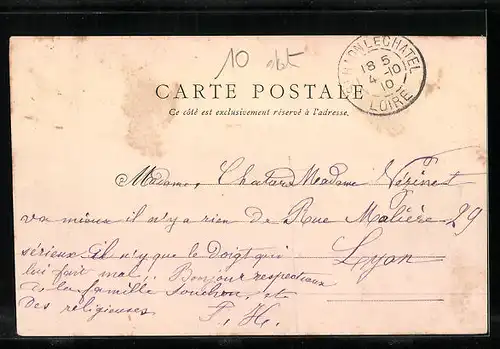 10 oct
RNONLECHATEL
18 5
4 -10
10
LOIRE
CARTE POSTALE
Ce côté est exclusivement réservé à l'adresse.
Madame, Chatard Madame Vézinet
va mieux il n'y a rien de Rue Molière 29
sérieux il n'y que le Doigt qui Lyon
lui fait mal, Bonjour respectueux
de la famille Souchon, et
des religieuses F. H.